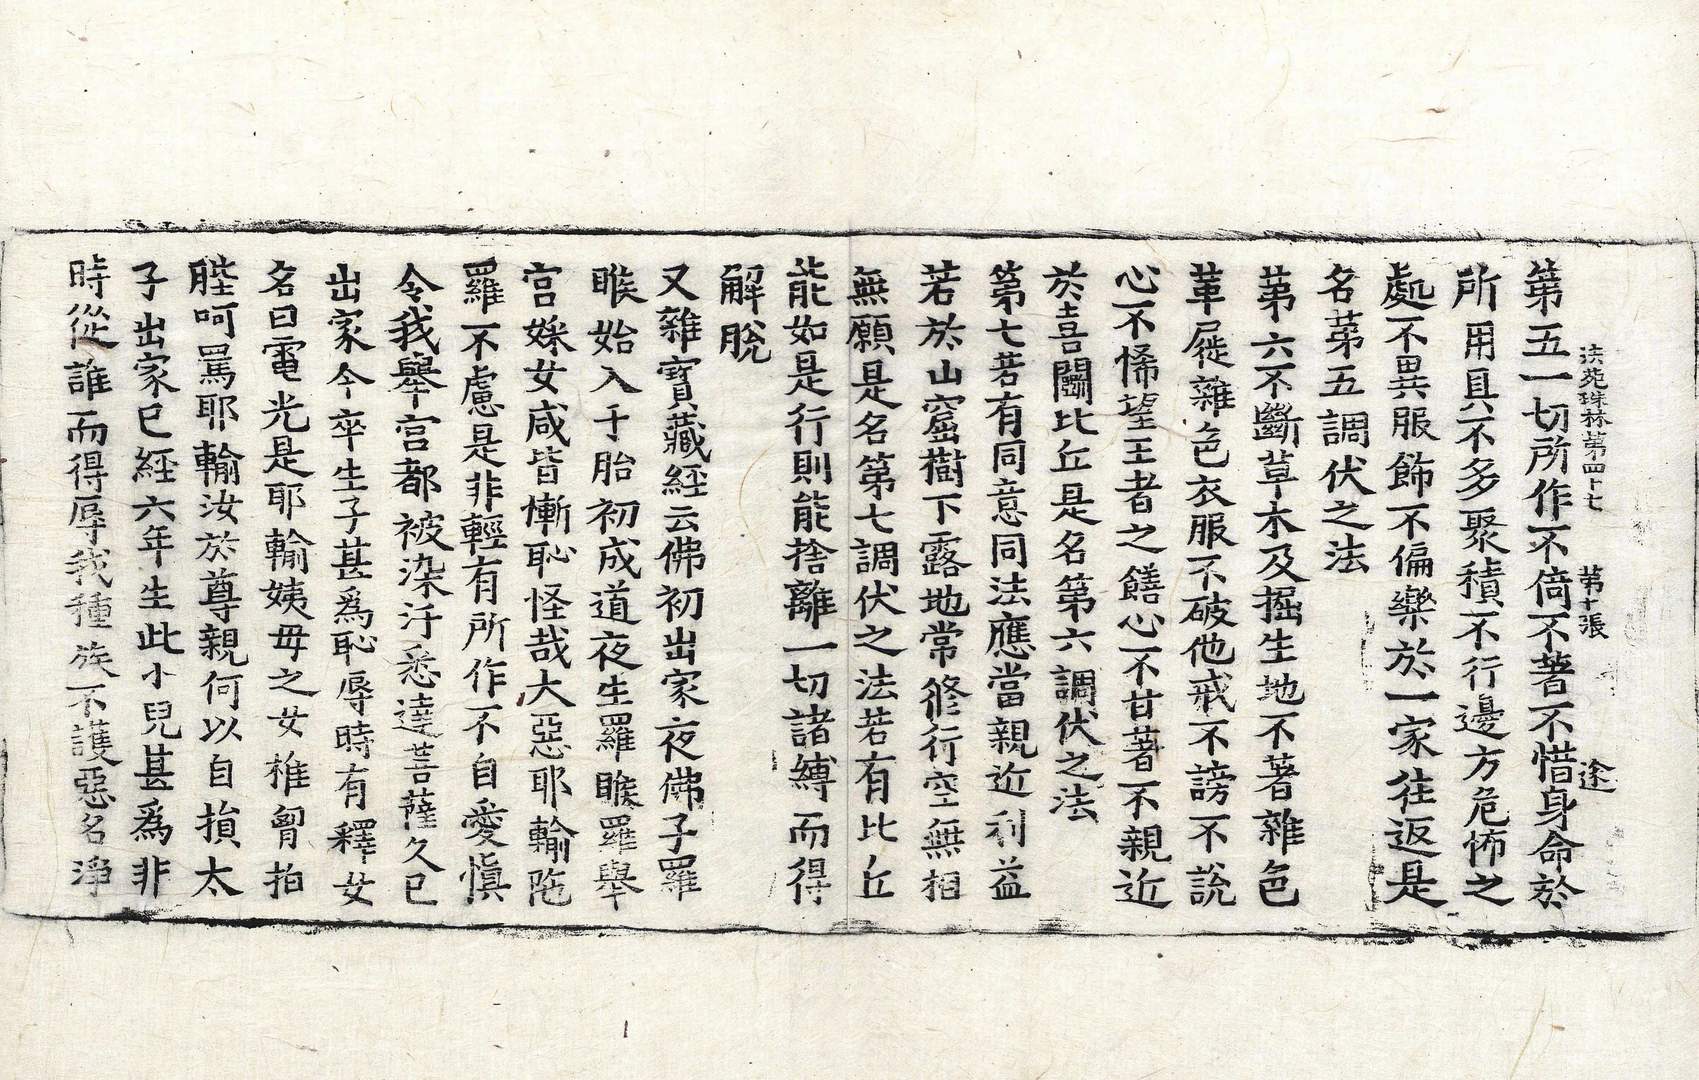 法苑珠林第四十七 第十張 途
第五一切所作不倚不著不惜身命於
所用具不多聚積不行邊方危怖之
處不異服飾不偏樂於一家往返是
名第五調伏之法
第六不斷草木及掘生地不著雜色
革屣雜色衣服不破他戒不謗不說
心不悕望王者之饍心不甘著不親近
於喜鬪比丘是名第六調伏之法
第七若有同意同法應當親近利益
若於山窟樹下露地常修行空無相
無願是名第七調伏之法若有比丘
能如是行則能捨離一切諸縛而得
解脫
又雜寶藏經云佛初出家夜佛子羅
睺始入于胎初成道夜生羅睺羅舉
宮婇女咸皆慚恥怪哉大惡耶輸陁
羅不慮是非輕有所作不自愛慎
令我舉宮都被染汙悉達菩薩久已
出家今卒生子甚爲恥辱時有釋女
名曰電光是耶輸姨母之女椎胷拍
髀呵罵耶輸汝於尊親何以自損太
子出家已經六年生此小兒甚爲非
時從誰而得辱我種族不護惡名淨